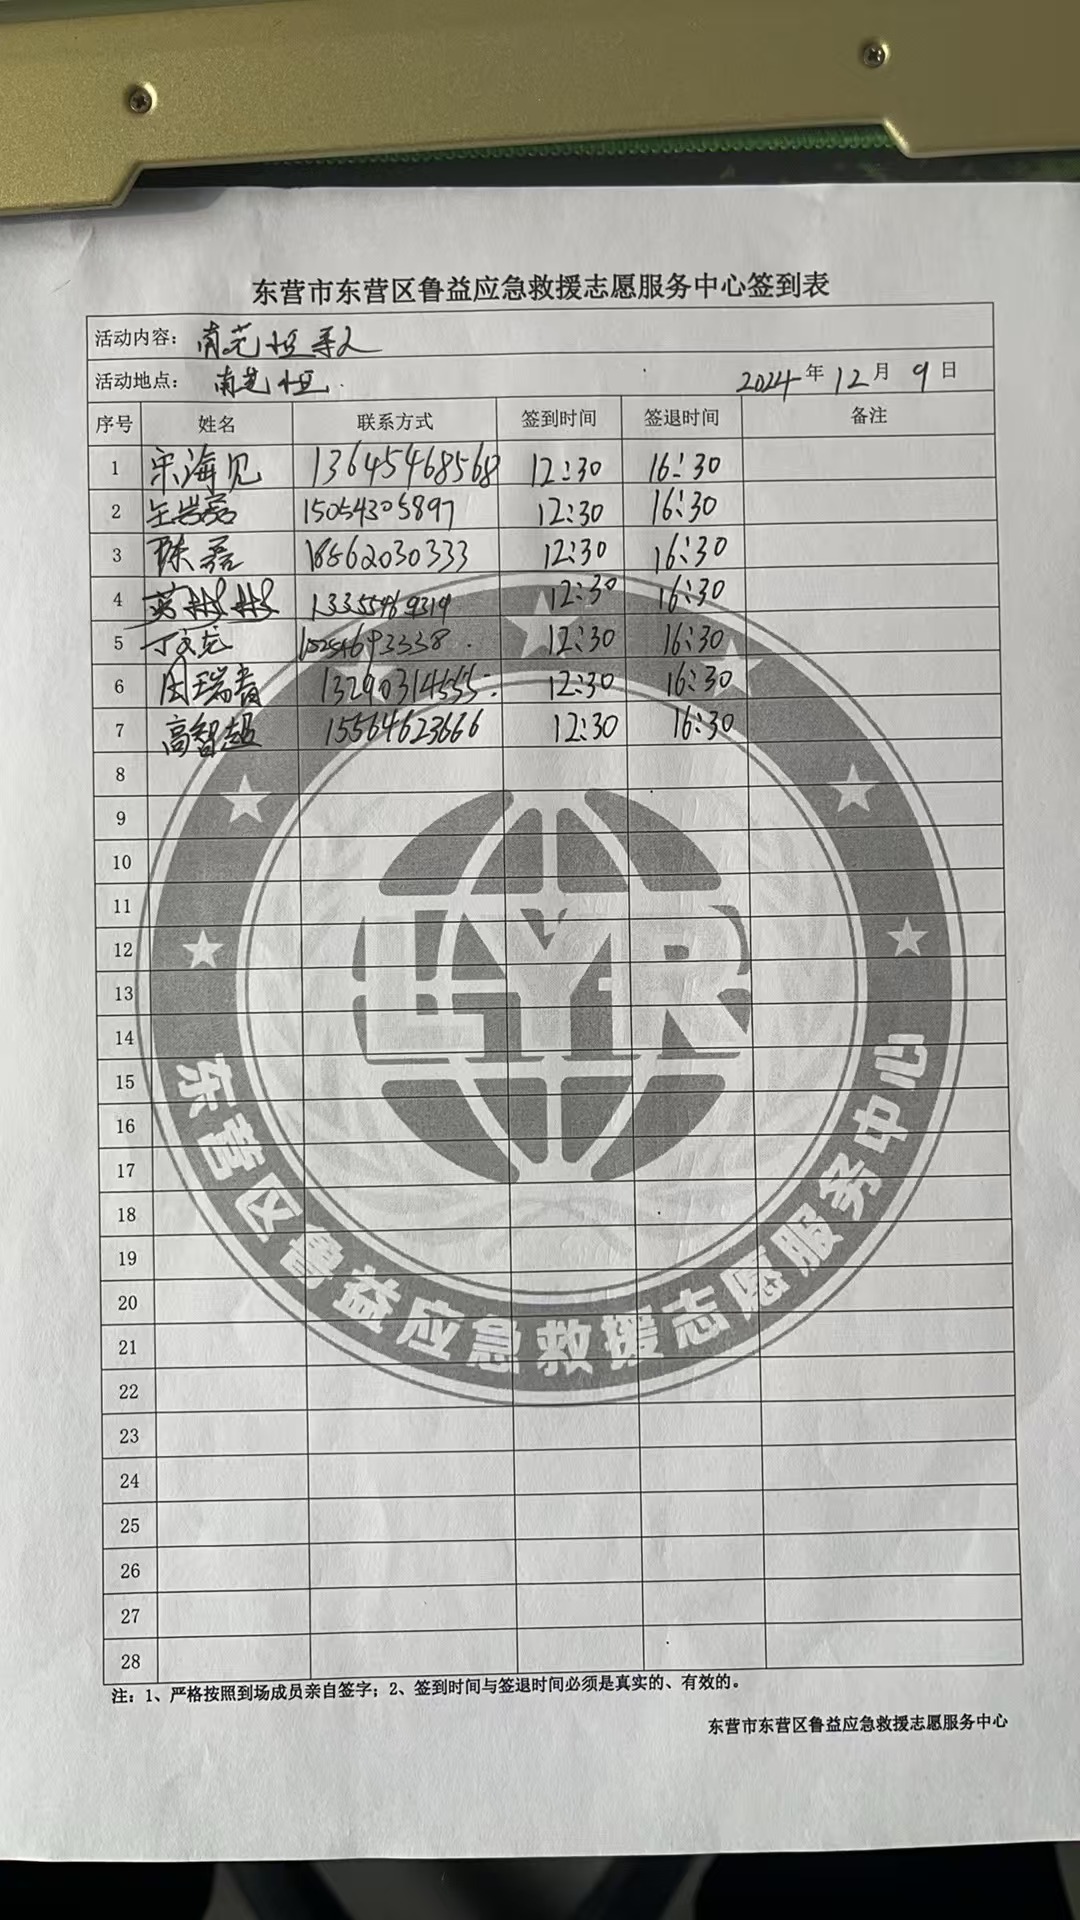 东营市东营区鲁益应急救援志愿服务中心签到表
活动内容：南 寻人
活动地点：南
2024年12月9日
序号 姓名 联系方式 签到时间 签退时间 备注
1 宋海见 13645468568 12:30 16:30
2 王岩磊 15054305897 12:30 16:30
3 陈磊 18562030333 12:30 16:30
4 12:30 16:30
5 丁文龙 12:30 16:30
6 周瑞青 13290314555 12:30 16:30
7 高智超 15564623666 12:30 16:30
8
9
10
11
12
13
14
15
16
17
18
19
20
21
22
23
24
25
26
27
28
LYR
东营区鲁益应急救援志愿服务中心
注：1、严格按照到场成员亲自签字；2、签到时间与签退时间必须是真实的、有效的。
东营市东营区鲁益应急救援志愿服务中心